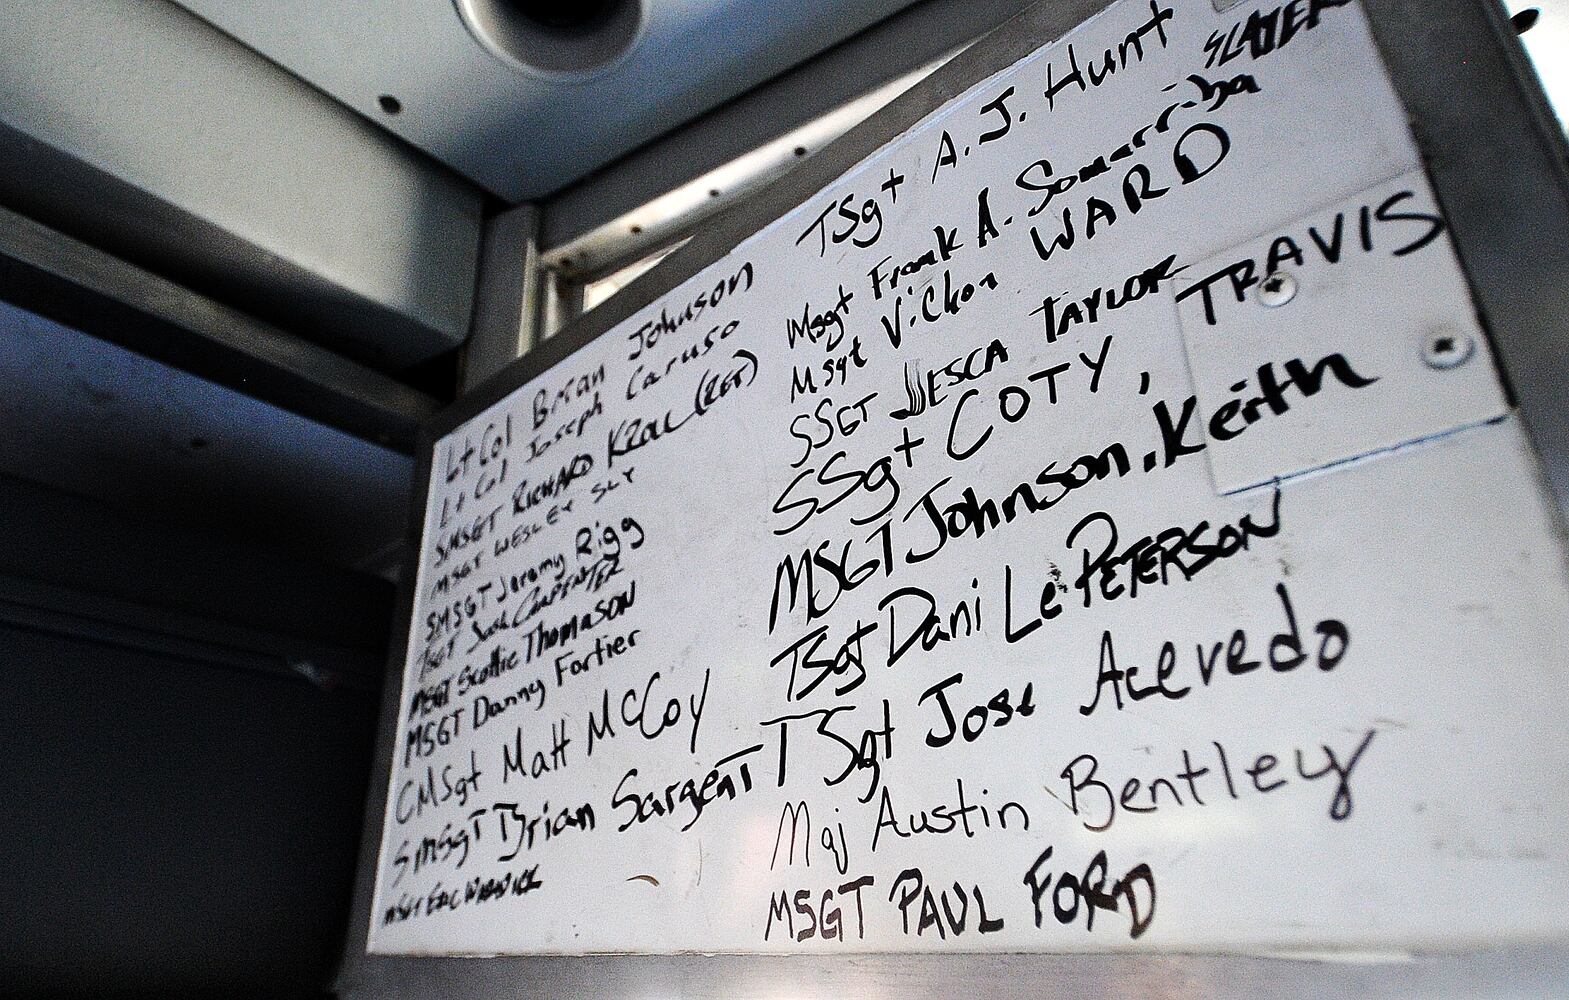 Lt Col Brian Johnson
Lt Col Joseph Caruso
SMSGT RICHARD KZOLL (RET)
MSGT WESLEY SLY
SMSGT Jeremy Rigg
TSGT Josh CARPENTER
MSGT Scottie Thomason
MSGT Danny Fortier
CMSgt Matt McCoy
SMSgT Brian SargenT
MSGT ERIC
TSgt A.J. Hunt
SLATER
Msgt Frank A. Somarriba
Msgt WARD
SSGT JESCA TAYLOR
SSgt COTY, TRAVIS
MSGT Johnson, Keith
TSgt Dani LePETERSON
TSgt Jose Acevedo
Maj Austin Bentley
MSGT PAUL FORD